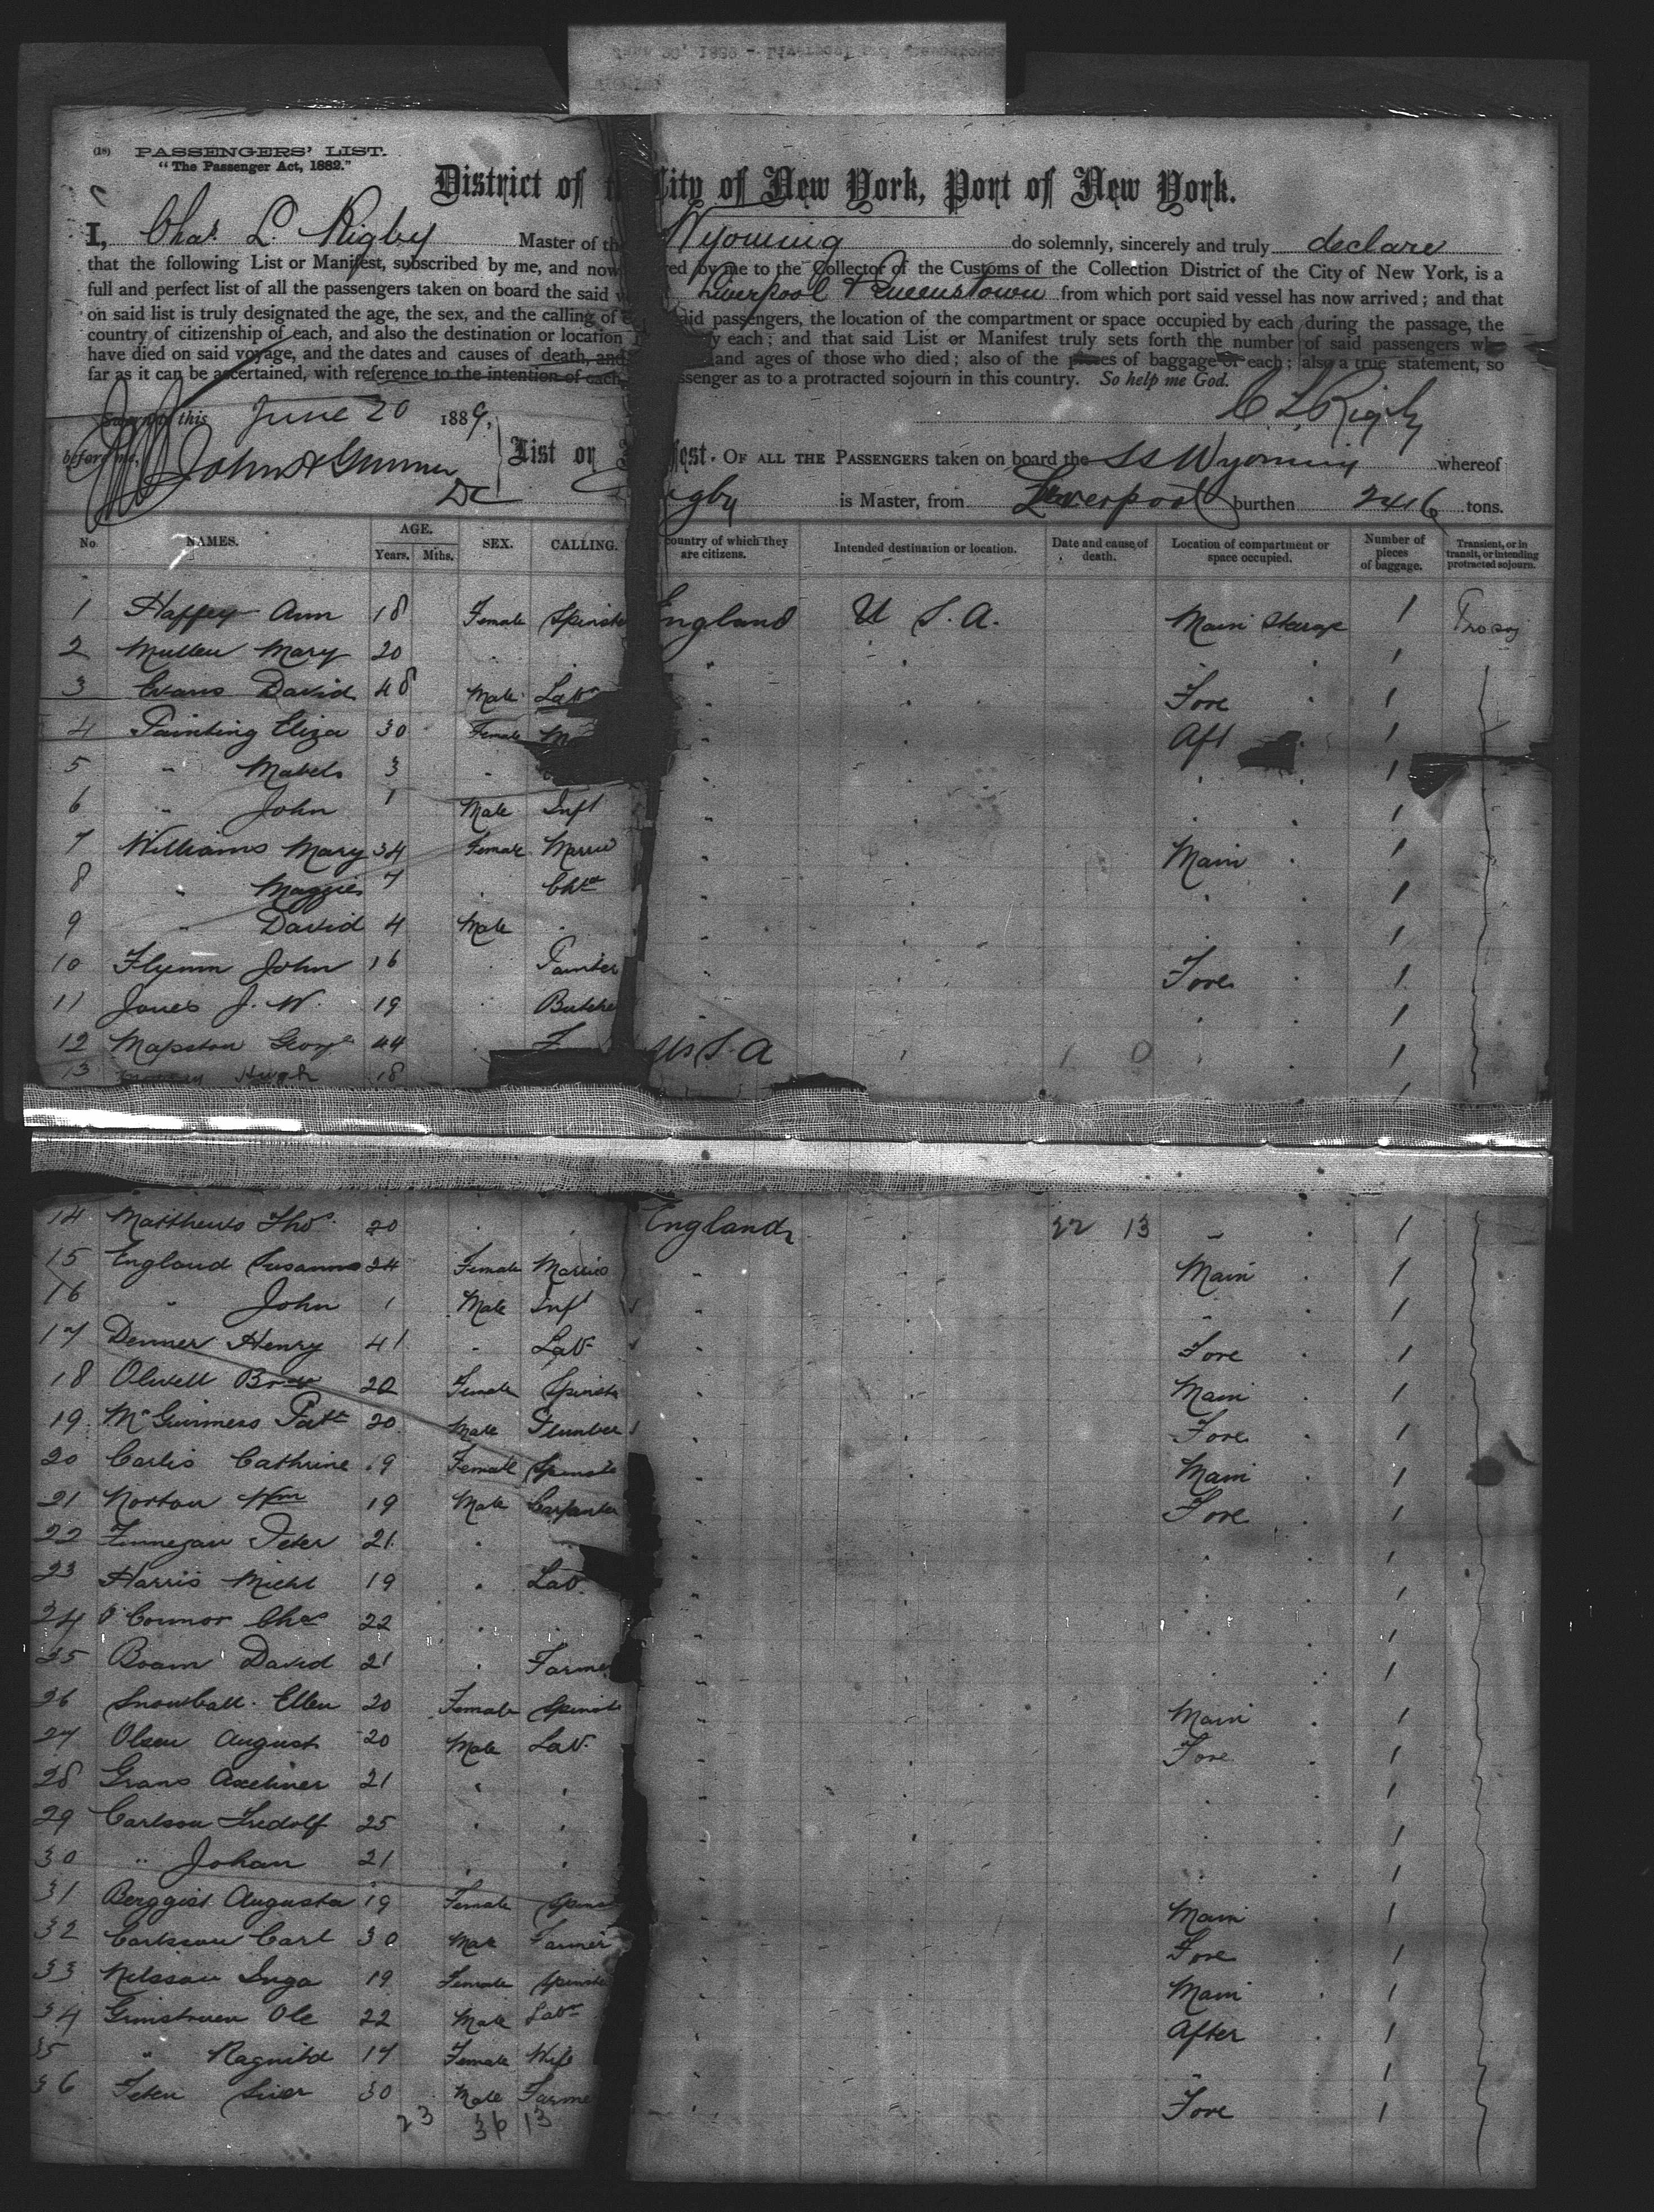 (18) PASSENGERS' LIST.
"The Passenger Act, 1882."
District of City of New York, Port of New York.
I, Chas. L. Rigby Master of the Wyoming do solemnly, sincerely and truly declare
that the following List or Manifest, subscribed by me, and now by me to the Collector of the Customs of the Collection District of the City of New York, is a
full and perfect list of all the passengers taken on board the said Liverpool & Queenstown from which port said vessel has now arrived; and that
on said list is truly designated the age, the sex, and the calling of said passengers, the location of the compartment or space occupied by each during the passage, the
country of citizenship of each, and also the destination or location by each; and that said List or Manifest truly sets forth the number of said passengers who
have died on said voyage, and the dates and causes of death, and and ages of those who died; also of the pieces of baggage of each; also a true statement, so
far as it can be ascertained, with reference to the intention of each passenger as to a protracted sojourn in this country. So help me God.
Sworn to this June 20 1889, C L Rigby
before me, List or OF ALL THE PASSENGERS taken on board the SS Wyoming whereof
DC Rigby is Master, from Liverpool burthen 2416 tons.
No. NAMES. AGE. Years. Mths. SEX. CALLING. Country of which they are citizens. Intended destination or location. Date and cause of death. Location of compartment or space occupied. Number of pieces of baggage. Transient, or in transit, or intending protracted sojourn.
1 Haffey Ann 18 Female Spinster England U S. A. Main Steerage 1
2 Mullen Mary 20 " " " " 1
3 Evans David 48 Male Labr " " Fore " 1
4 Painting Eliza 30 Female " " Aft " 1
5 " Mabel 3 " " " " 1
6 " John 1 Male Inft " " " " 1
7 Williams Mary 34 Female Married " " Main " 1
8 " Maggie 7 " Chd " " " " 1
9 " David 4 Male " " " " " 1
10 Flynn John 16 " Painter " " Fore " 1
11 Jones J. W. 19 " Butcher " " " " 1
12 Mapston George 44 " U.S.A " 1 0 " " 1
13 Hugh 18 1
14 Matthews Thos. 20 " " England " 22 13 " " 1
15 England Susanna 24 Female Married " " Main " 1
16 " John 1 Male Inft " " " " 1
17 Denner Henry 41 " Labr " " Fore " 1
18 20 Female Spinster " " Main " 1
19 McGuinness Patk 20 Male Plumber " " Fore " 1
20 Carlis Cathrine 19 Female Spinster " " Main " 1
21 Norton Wm 19 Male Carpenter " " Fore " 1
22 Finnegan Peter 21 " " " " " 1
23 Harris Michl 19 " Lab. " " " " 1
24 O'Connor Chas 22 " " " " " " 1
25 Boam David 21 " Farmer " " " " 1
26 Snowball Ellen 20 Female Spinster " " Main " 1
27 Olsen August 20 Male Lab. " " Fore " 1
28 Grans 21 " " " " " " 1
29 Carlson Fridolf 25 " " " " " " 1
30 " Johan 21 " " " " " " 1
31 Berggist Augusta 19 Female Spinster " " Main " 1
32 Carlsson Carl 30 Male Farmer " " Fore " 1
33 Nilsson Inga 19 Female Spinster " " Main " 1
34 Ole 22 Male Labr " " After " 1
35 " Ragnild 17 Female Wife " " " " 1
36 30 Male Farmer " " Fore " 1
23 36 13